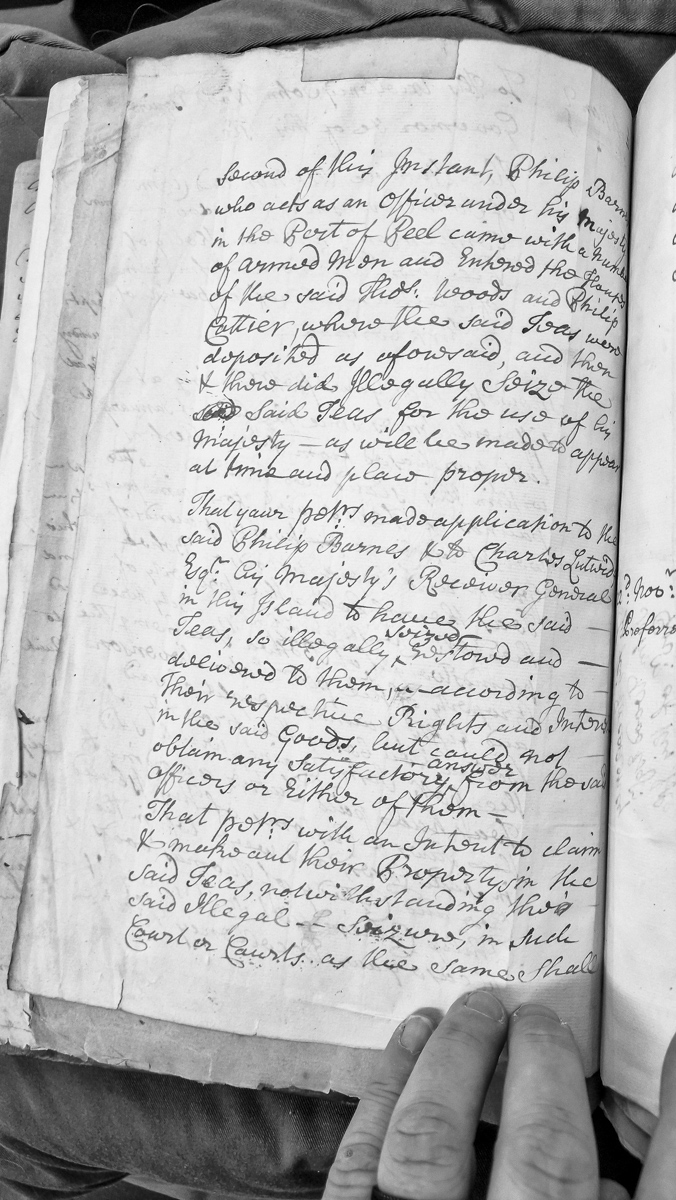 Second of this Instant, Philip Barn
who acts as an officer under his Majesty
in the Port of Peel came with a num
of armed Men and Entered the Houses
of the said Thos: Woods and Philip
Cattier, where the said Teas were
deposited as aforesaid, and then
& there did Illegally Seize the
Said Teas for the use of his
Majesty — as will be made to appear
at time and place proper.
That your petrs made application to the
said Philip Barnes & to Charles Lutwid
Esqr. his Majesty's Receiver General
in this Island to have the said —
Teas, so illegally seized restored and —
delivered to them, according to —
their respective Rights and Interes
in the said Goods, but could not —
obtain any satisfactory answer from the said
officers or Either of them —
That petrs with an Intent to claim
& make out their Property in the
said Teas, notwithstanding the
said Illegal — Seizure, in such
Court or Courts as the same Shall
d. Nov:
Preferre